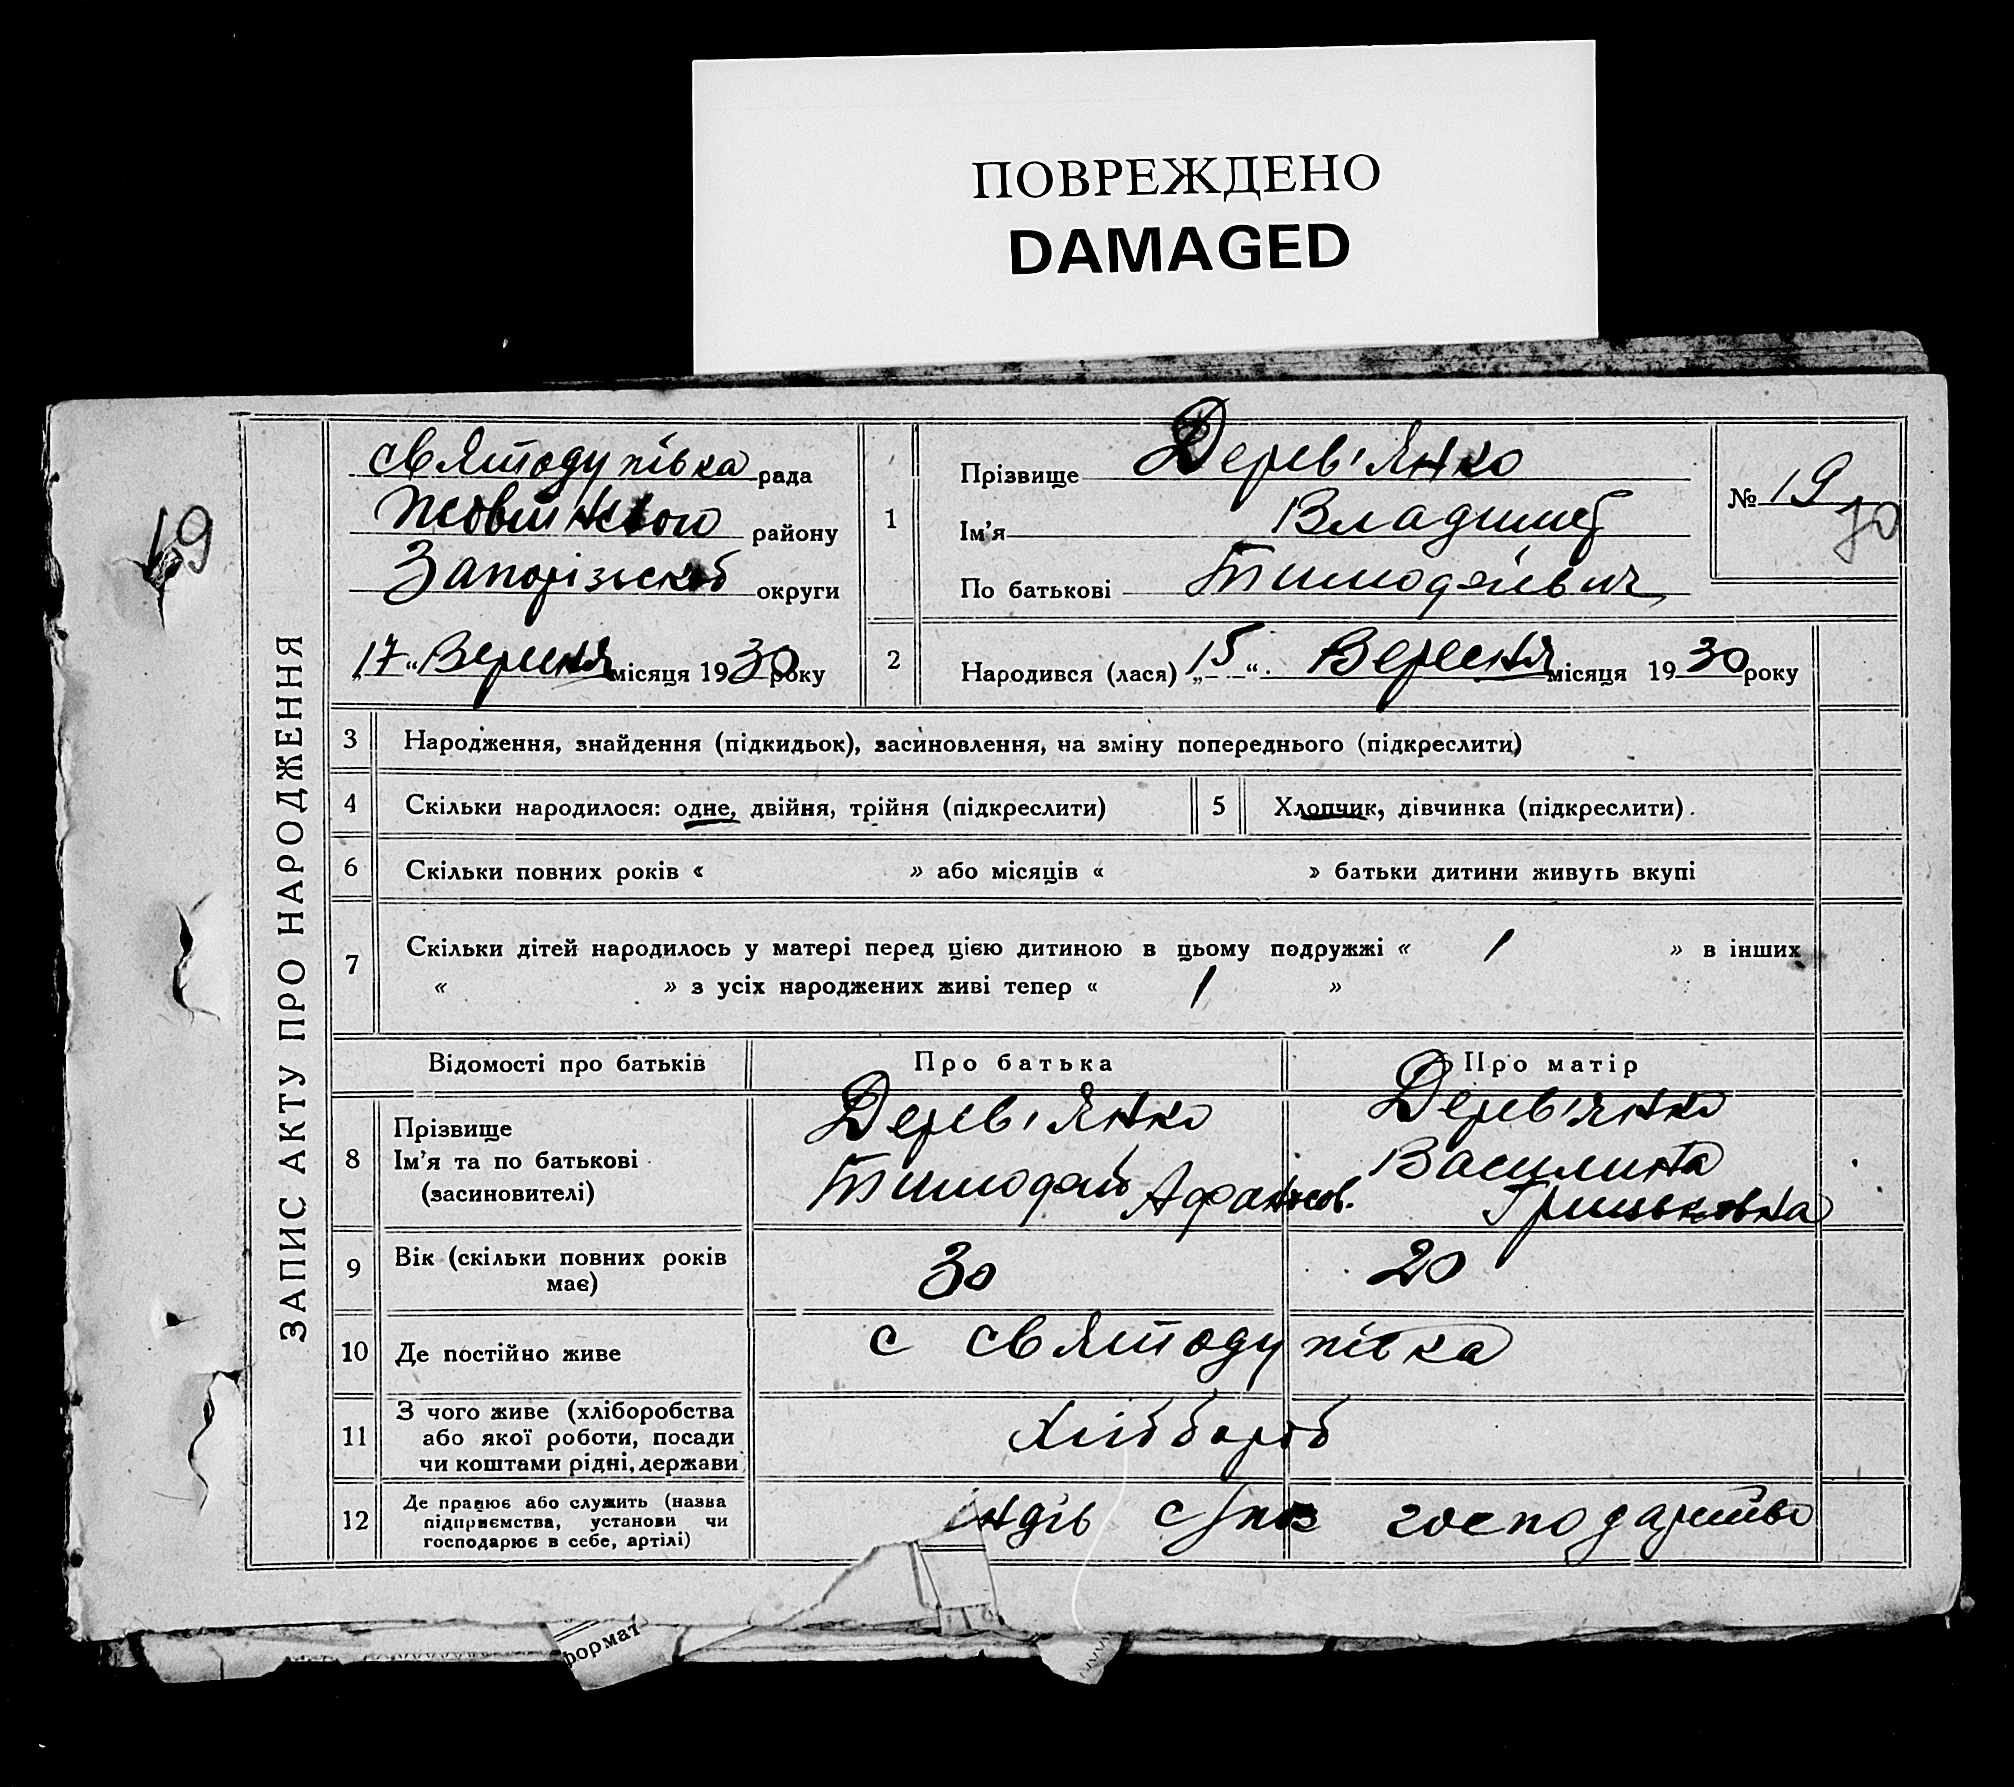 ПОВРЕЖДЕНО
DAMAGED
19
ЗАПИС АКТУ ПРО НАРОДЖЕННЯ
святодухівка рада
району
Запорізької округи
„17“ Вересня місяця 1930 року
1
Прізвище Дерев'янко
Ім'я Владимир
По батькові Тимофійович
№ 19
2
Народився (лася) „15“ Вересня місяця 1930 року
3 Народження, знайдення (підкидьок), засиновлення, на зміну попереднього (підкреслити)
4 Скільки народилося: одне, двійня, трійня (підкреслити)
5 Хлопчик, дівчинка (підкреслити).
6 Скільки повних років « » або місяців « » батьки дитини живуть вкупі
7 Скільки дітей народилось у матері перед цією дитиною в цьому подружжі « 1 » в інших
« » з усіх народжених живі тепер « 1 »
Відомості про батьків Про батька Про матір
8 Прізвище
Ім'я та по батькові
(засиновителі)
Дерев'янко
Тимофій Афанасов.
Дерев'янко
Василина
Грицьковна
9 Вік (скільки повних років
має)
30 20
10 Де постійно живе с святодухівка
11 З чого живе (хліборобства
або якої роботи, посади
чи коштами рідні, держави
Хлібороб
12 Де працює або служить (назва
підприємства, установи чи
господарює в себе, артілі)
індів господарство
формат